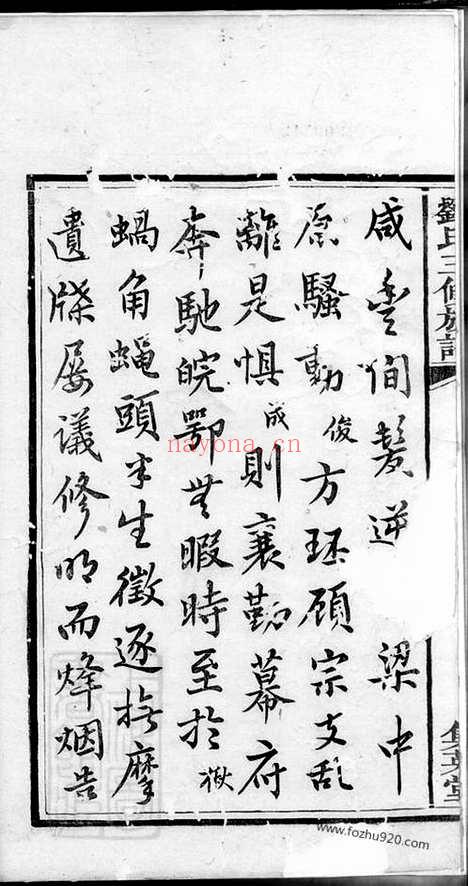 咸豐間髮逆 梁中
原騷動俊方珏顧宗支亂
離是惧成則襄勤幕府
奔馳皖鄂無暇時至於
蝸角蠅頭半生徵逐撫摩
遺牒屡議修明而烽烟告
劉氏三修族譜
集賢堂
nayona.cn
www.fozhu920.com